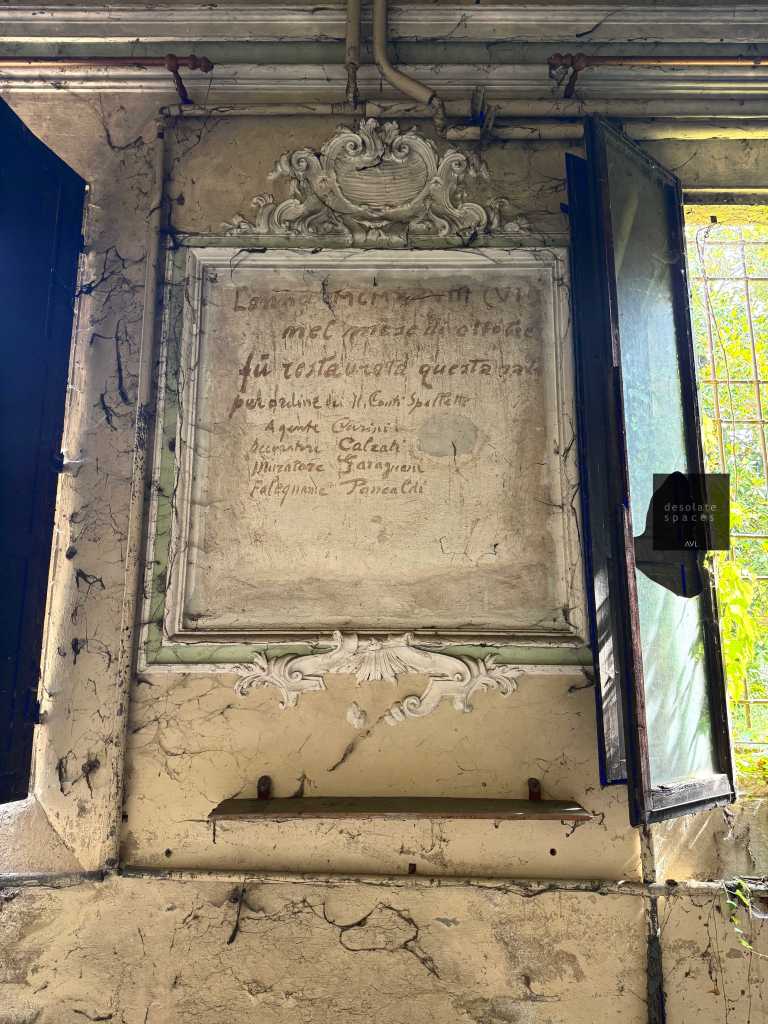 L'anno
nel mese di ottobre
fù restaurata questa sala
per ordine dei Conti Spalletti
Agente
Decoratori Calzati
Muratore
Falegname Pancaldi
desolate
spaces
AVL